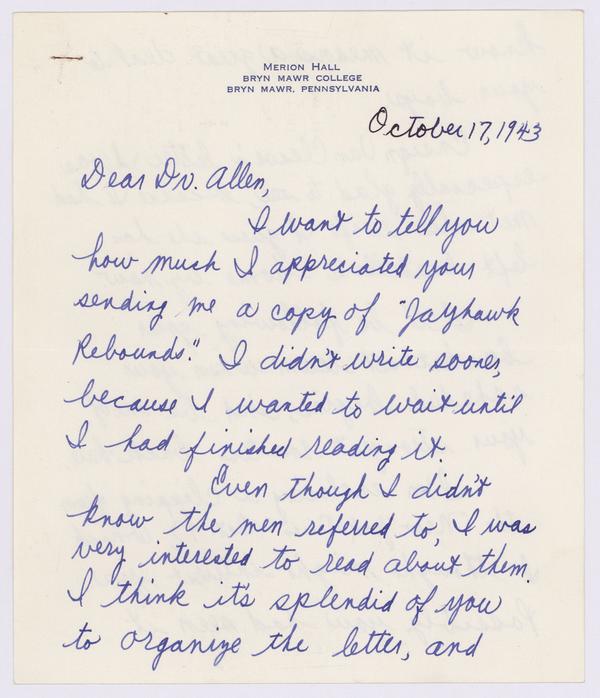 MERION HALL
BRYN MAWR COLLEGE
BRYN MAWR, PENNSYLVANIA
October 17, 1943
Dear Dr. Allen,
I want to tell you
how much I appreciated your
sending me a copy of "Jayhawk
Rebounds." I didn't write sooner,
because I wanted to wait until
I had finished reading it.
Even though I didn't
know the men referred to, I was
very interested to read about them.
I think it's splendid of you
to organize the letter, and